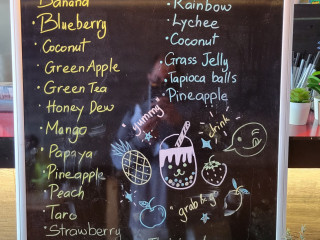 Banana
Blueberry
Coconut
Green Apple
Green Tea
Honey Dew
Mango
Papaya
Pineapple
Peach
Taro
Strawberry
Rainbow
Lychee
Coconut
Grass Jelly
Tapioca balls
Pineapple
yummy
drink
grab & go